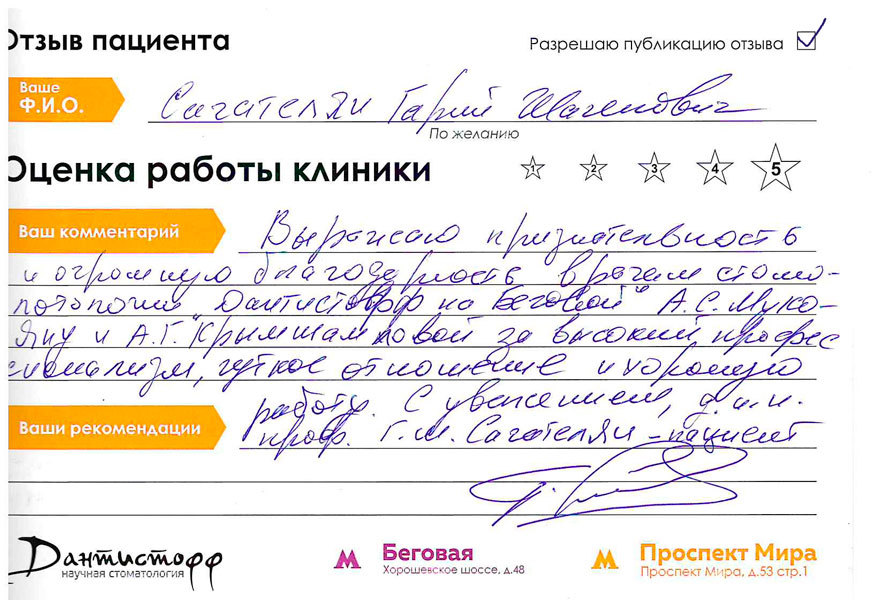 Отзыв пациента
Разрешаю публикацию отзыва
Ваше
Ф.И.О.
Сагателян Гарий Шагенович
По желанию
Оценка работы клиники
1 2 3 4 5
Ваш комментарий
Выражаю признательность
и огромную благодарность врачам стома-
тологии "Дантистофф на Беговой" А.С. Муко-
яну и А.Г. Крымшамховой за высокий профес
сионализм, чуткое отношение и хорошую
работу. С уважением, д.и.н.
Ваши рекомендации
проф. Г.М. Сагателян - пациент
Дантистофф
научная стоматология
Беговая
Хорошевское шоссе, д.48
Проспект Мира
Проспект Мира, д.53 стр.1